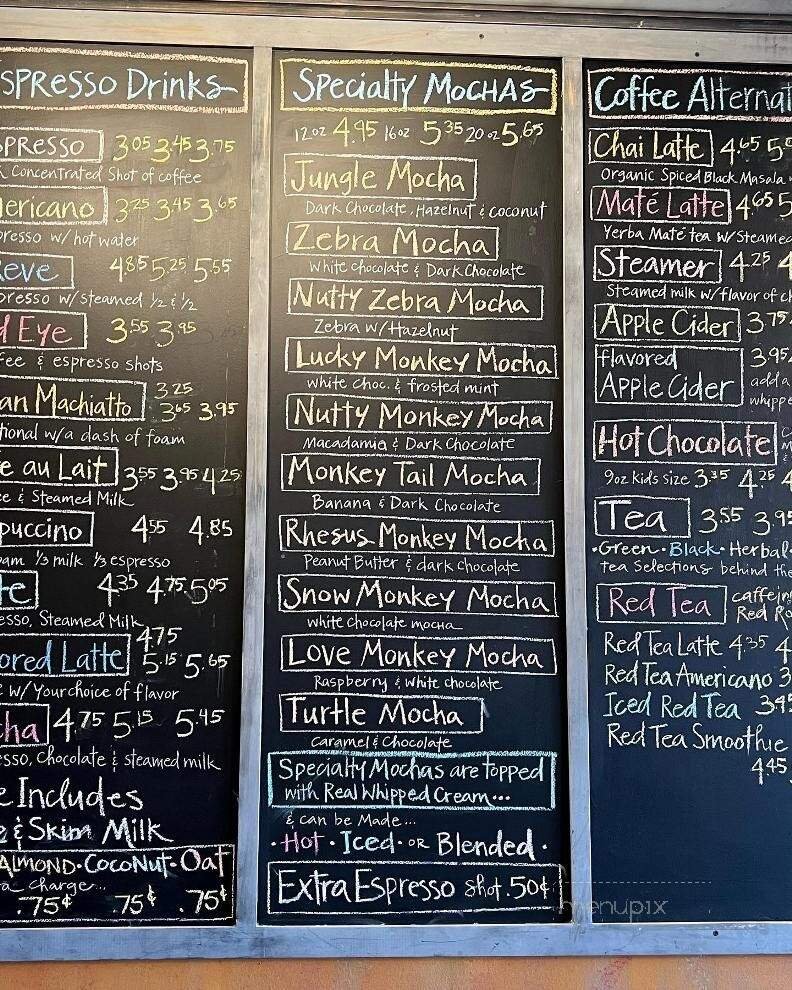 spresso Drinks
presso 3.05 3.45 3.75
Concentrated Shot of coffee
ericano 3.25 3.45 3.65
presso w/ hot water
reve 4.85 5.25 5.55
presso w/ steamed ½ & ½
d Eye 3.55 3.95
fee & espresso shots
an Machiatto 3.25
3.65 3.95
tional w/a dash of foam
e au Lait 3.55 3.95 4.25
ee & Steamed Milk
puccino 4.55 4.85
oam ⅓ milk ⅓ espresso
te 4.35 4.75 5.05
esso, Steamed Milk
4.75
ored Latte 5.15 5.65
e w/ Your choice of flavor
cha 4.75 5.15 5.45
esso, Chocolate & steamed milk
e Includes
e & Skim Milk
Almond • Coconut • Oat
a charge...
.75¢ .75¢ .75¢
Specialty Mochas
12oz 4.95 16oz 5.35 20oz 5.65
Jungle Mocha
Dark Chocolate, Hazelnut & coconut
Zebra Mocha
White chocolate & Dark Chocolate
Nutty Zebra Mocha
Zebra w/Hazelnut
Lucky Monkey Mocha
white choc. & frosted mint
Nutty Monkey Mocha
Macadamia & Dark Chocolate
Monkey Tail Mocha
Banana & Dark Chocolate
Rhesus Monkey Mocha
Peanut Butter & dark chocolate
Snow Monkey Mocha
white chocolate mocha
Love Monkey Mocha
Raspberry & White chocolate
Turtle Mocha
Caramel & Chocolate
Specialty Mochas are topped
with Real Whipped Cream...
& can be Made...
• Hot • Iced • or Blended •
Extra Espresso shot .50¢
Coffee Alternat
Chai Latte 4.65 5
Organic Spiced Black Masala
Maté Latte 4.65 5
Yerba Maté tea w/ Steamed
Steamer 4.25 4
Steamed milk w/ flavor of ch
Apple Cider 3.75
flavored 3.95
Apple Cider add a
whippe
Hot Chocolate
9oz Kids Size 3.35 4.25 4
Tea 3.55 3.95
• Green • Black • Herbal •
tea Selections behind the
Red Tea caffein
Red Ro
Red Tea Latte 4.35 4
Red Tea Americano 3
Iced Red Tea 3.95
Red Tea Smoothie
4.45
menupix